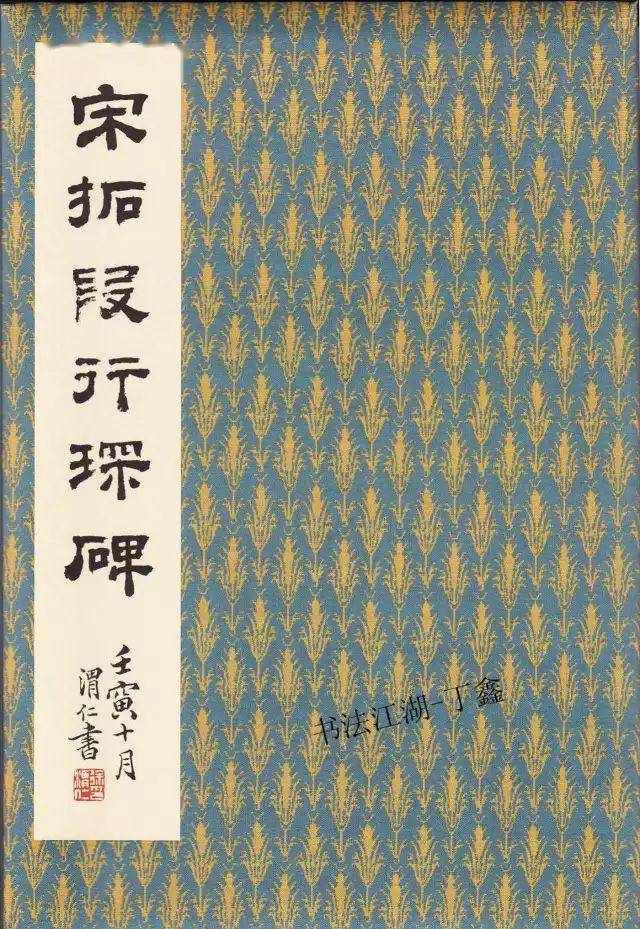 宋拓段行琛碑
壬寅十月
渭仁書
徐渭仁
书法江湖-丁鑫